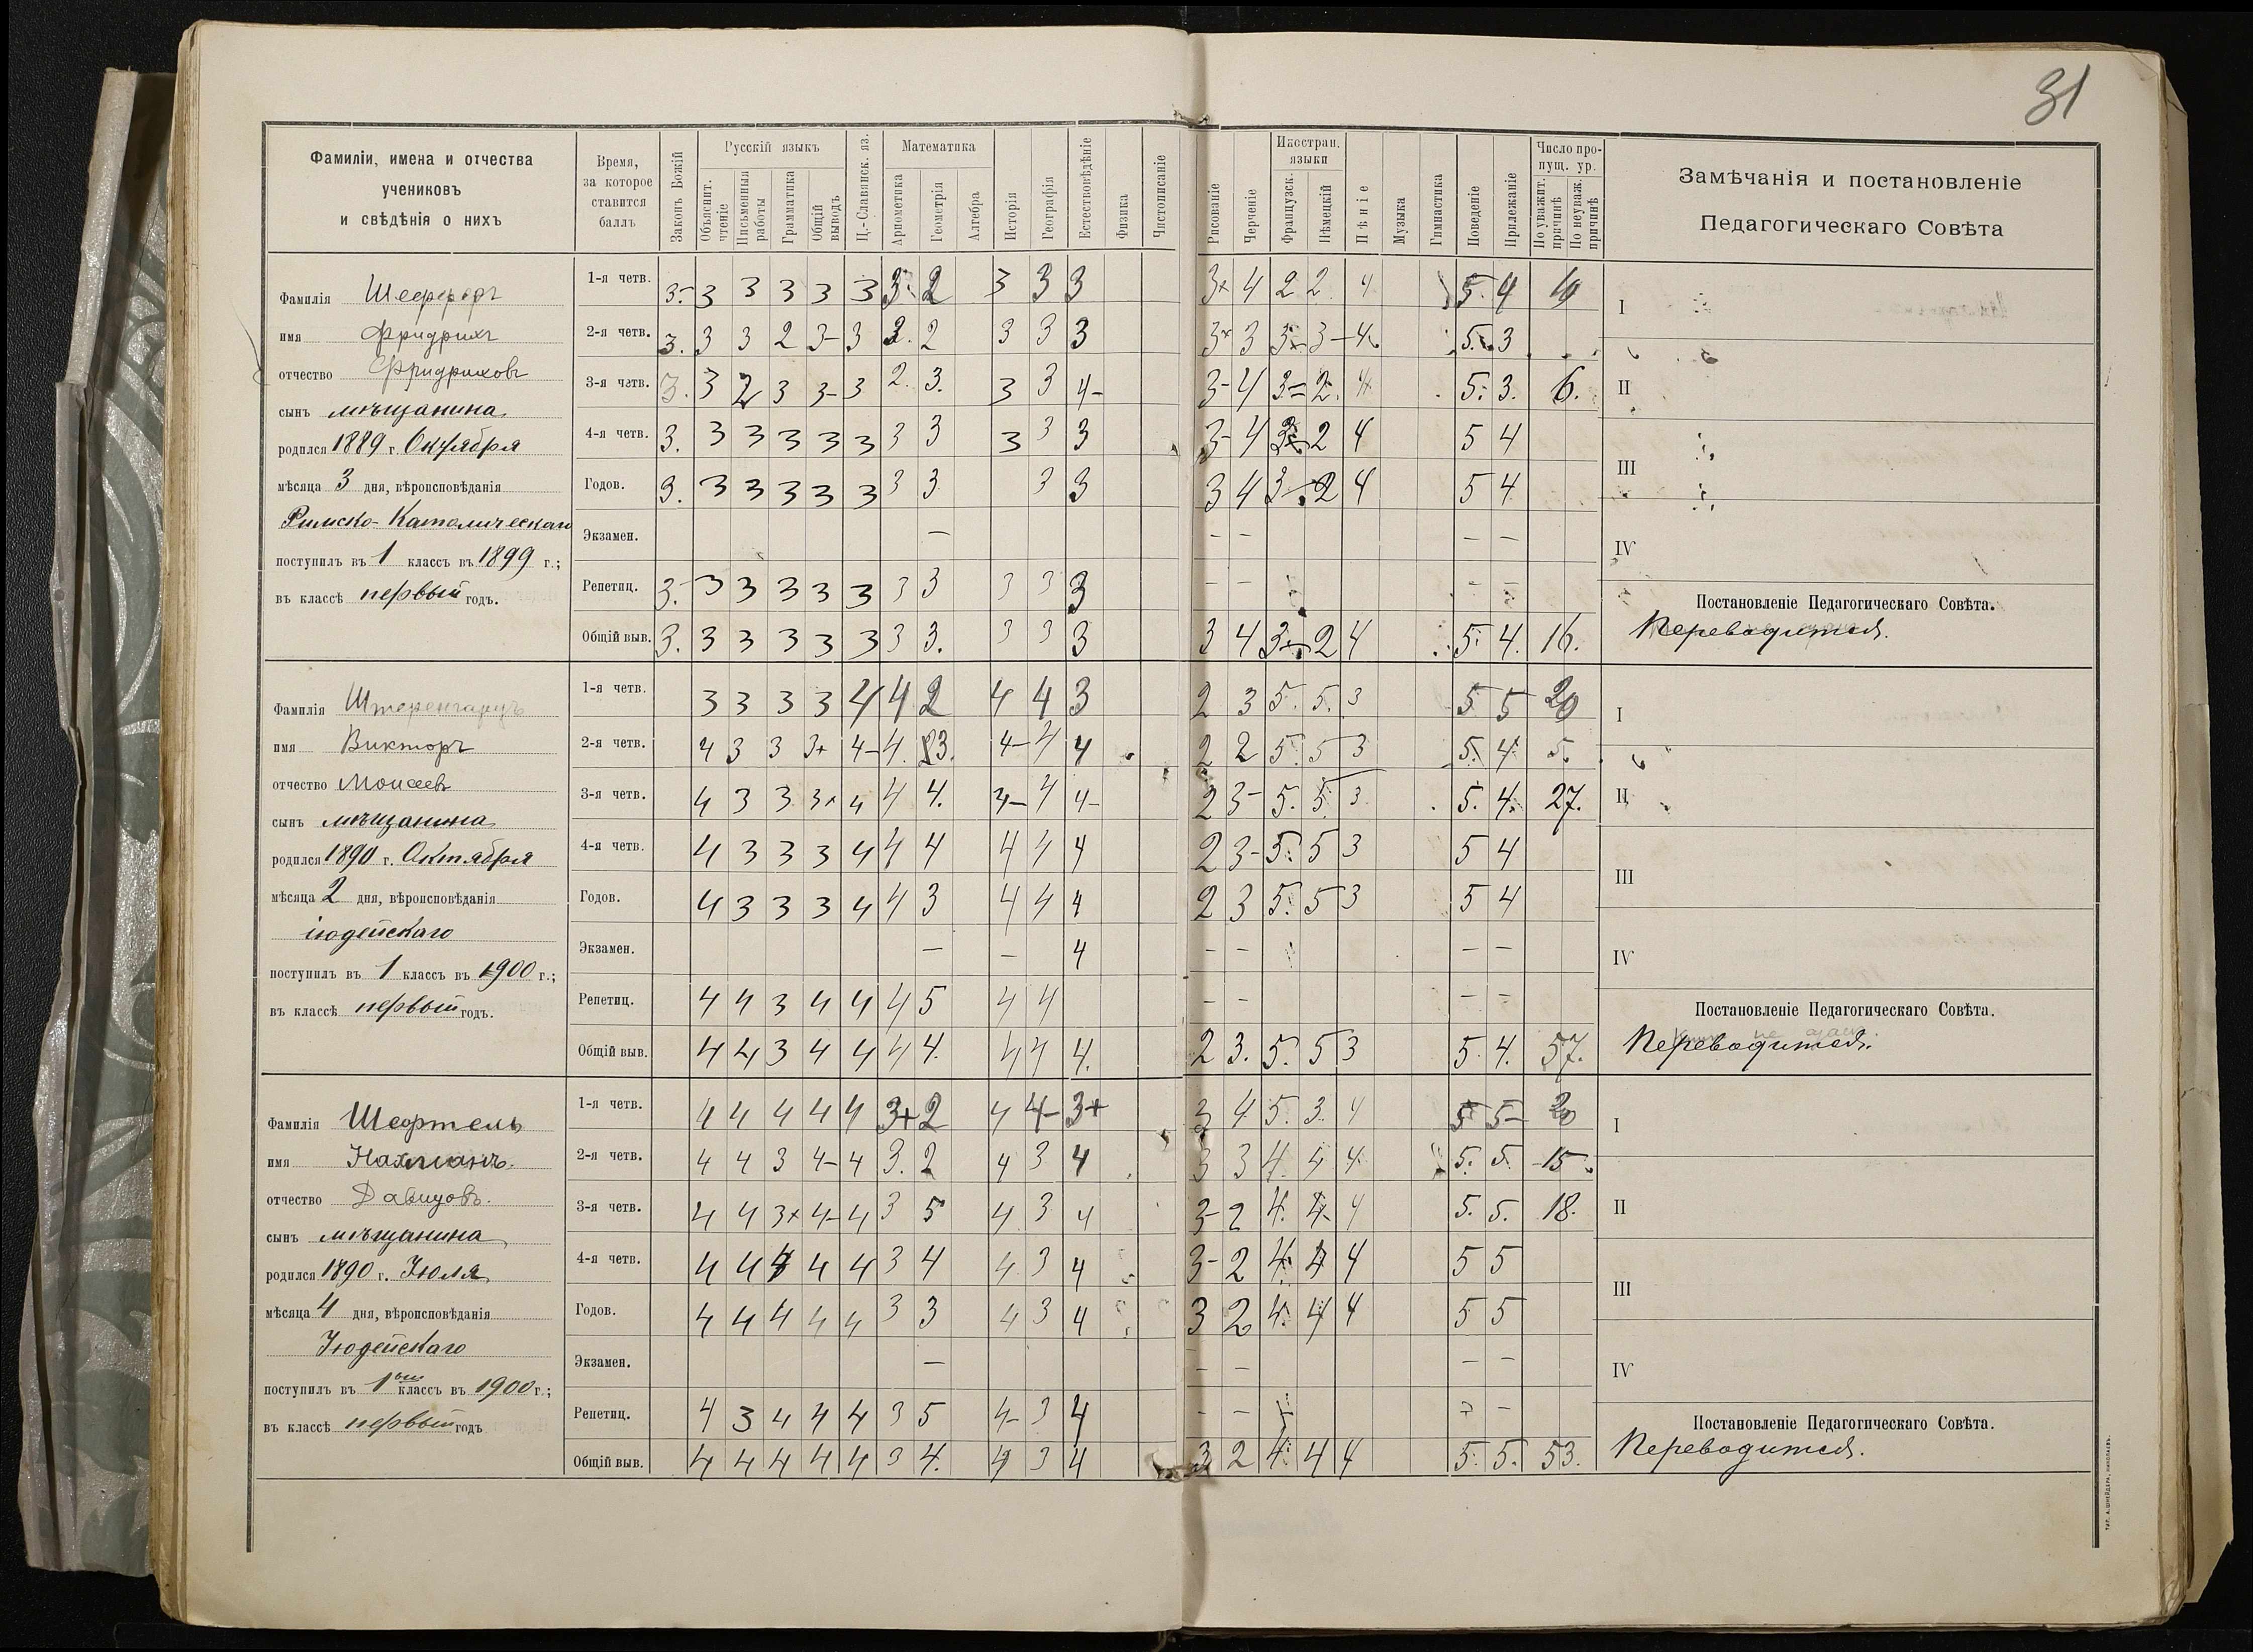 31
Фамиліи, имена и отчества
учениковъ
и свѣдѣнія о нихъ
Время,
за которое
ставится
баллъ
Законъ Божій
Русскій языкъ
Объяснит.
чтеніе
Письменныя
работы
Грамматика
Общій
выводъ
Ц.-Славянск. яз.
Математика
Ариѳметика
Геометрія
Алгебра
Исторія
Географія
Естествовѣдѣніе
Физика
Чистописаніе
Рисованіе
Черченіе
Иностран.
языки
Французск.
Нѣмецкій
Пѣніе
Музыка
Гимнастика
Поведеніе
Прилежаніе
Число про-
пущ. ур.
По уважит.
причинѣ
По неуваж.
причинѣ
Замѣчанія и постановленіе
Педагогическаго Совѣта
Фамилія
имя Фридрихъ
отчество Фридриховъ
сынъ мѣщанина
родился 1889 г. Октября
мѣсяца 3 дня, вѣроисповѣданія
Римско-Католическаго
поступилъ въ 1 классъ въ 1899 г.;
въ классѣ первый годъ.
1-я четв. 3- 3 3 3 3 3 3- 2 3 3 3 3+ 4 2 2 4 5. 4 10
2-я четв. 3. 3 3 2 3- 3 3. 2 3 3 3 3+ 3 3- 3- 4 5. 3
3-я четв. 3. 3 2 3 3- 3 2. 3. 3 3 4- 3- 4 3- 2. 4 5. 3. 6.
4-я четв. 3. 3 3 3 3 3 3 3 3 3 3 3- 4 2 4 5 4
Годов. 3. 3 3 3 3 3 3 3 3 3 3 4 3- 2 4 5 4
Экзамен. — — — — —
Репетиц. 3. 3 3 3 3 3 3 3 3 3 3 — — — —
Общій выв. 3. 3 3 3 3 3 3 3. 3 3 3 3 4 3- 2 4 5. 4. 16.
I
II
III
IV
Постановленіе Педагогическаго Совѣта.
Переводится.
Фамилія
имя Викторъ
отчество Моисеевъ
сынъ мѣщанина
родился 1890 г. Октября
мѣсяца 2 дня, вѣроисповѣданія
іюдейскаго
поступилъ въ 1 классъ въ 1900 г.;
въ классѣ первый годъ.
1-я четв. 3 3 3 3 4 4 2 4 4 3 2 3 5. 5. 3 5 5 20
2-я четв. 4 3 3 3+ 4- 4. 3. 4- 4 4 2 2 5. 5 3 5. 4. 5.
3-я четв. 4 3 3 3+ 4 4 4. 4- 4 4- 2 3- 5. 5. 3 5. 4. 27.
4-я четв. 4 3 3 3 4 4 4 4 4 4 2 3- 5. 5 3 5 4
Годов. 4 3 3 3 4 4 3 4 4 4 2 3 5. 5 3 5 4
Экзамен. — — 4 — — — —
Репетиц. 4 4 3 4 4 4 5 4 4 — — — —
Общій выв. 4 4 3 4 4 4 4. 4 4 4. 2 3. 5. 5 3 5. 4. 57.
I
II
III
IV
Постановленіе Педагогическаго Совѣта.
Переводится.
Фамилія Шефтель
имя Нахманъ.
отчество Давидовъ.
сынъ мѣщанина
родился 1890 г. Іюля
мѣсяца 4 дня, вѣроисповѣданія
Іюдейскаго
поступилъ въ 1ый классъ въ 1900 г.;
въ классѣ первый годъ
1-я четв. 4 4 4 4 4 3+ 2 4 4- 3+ 3 4 5. 3. 4 5 5- 20
2-я четв. 4 4 3 4- 4 3. 2 4 3 4 3 3 4. 4 4 5. 5. 15
3-я четв. 4 4 3+ 4- 4 3 5 4 3 4 3- 2 4. 4- 4 5. 5. 18.
4-я четв. 4 4 4 4 4 3 4 4 3 4 3- 2 4. 4 4 5 5
Годов. 4 4 4 4 4 3 3 4 3 4 3 2 4. 4 4 5 5
Экзамен. — — — — —
Репетиц. 4 3 4 4 4 3 5 4- 3 4 — — — —
Общій выв. 4 4 4 4 4 3 4. 4 3 4 3 2 4. 4 4 5. 5. 53.
I
II
III
IV
Постановленіе Педагогическаго Совѣта.
Переводится.
Тип. А. Шнейдера, Николаевъ.